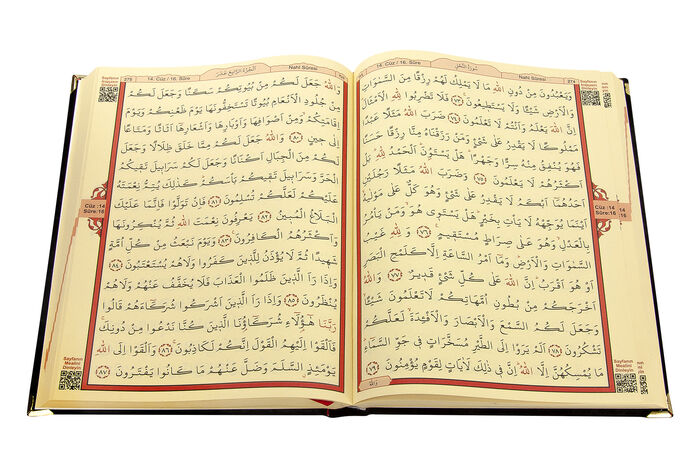 Nahl Sûresi
سُورَةُ النَّحْلِ
274
وَيَعْبُدُونَ مِنْ دُونِ اللّٰهِ مَا لَا يَمْلِكُ لَهُمْ رِزْقًا مِنَ السَّمٰوَاتِ
وَالْاَرْضِ شَيْـًٔا وَلَا يَسْتَطِيعُونَ ﴿٧٣﴾ فَلَا تَضْرِبُوا لِلّٰهِ الْاَمْثَالَ
اِنَّ اللّٰهَ يَعْلَمُ وَاَنْتُمْ لَا تَعْلَمُونَ ﴿٧٤﴾ ضَرَبَ اللّٰهُ مَثَلًا عَبْدًا
مَمْلُوكًا لَا يَقْدِرُ عَلٰى شَيْءٍ وَمَنْ رَزَقْنَاهُ مِنَّا رِزْقًا حَسَنًا
فَهُوَ يُنْفِقُ مِنْهُ سِرًّا وَجَهْرًا هَلْ يَسْتَوُونَ اَلْحَمْدُ لِلّٰهِ بَلْ
اَكْثَرُهُمْ لَا يَعْلَمُونَ ﴿٧٥﴾ وَضَرَبَ اللّٰهُ مَثَلًا رَجُلَيْنِ
اَحَدُهُمَا اَبْكَمُ لَا يَقْدِرُ عَلٰى شَيْءٍ وَهُوَ كَلٌّ عَلٰى مَوْلٰيهُ
اَيْنَمَا يُوَجِّهْهُ لَا يَأْتِ بِخَيْرٍ هَلْ يَسْتَوِي هُوَ وَمَنْ يَأْمُرُ
بِالْعَدْلِ وَهُوَ عَلٰى صِرَاطٍ مُسْتَقِيمٍ ﴿٧٦﴾ وَلِلّٰهِ غَيْبُ
السَّمٰوَاتِ وَالْاَرْضِ وَمَا اَمْرُ السَّاعَةِ اِلَّا كَلَمْحِ الْبَصَرِ
اَوْ هُوَ اَقْرَبُ اِنَّ اللّٰهَ عَلٰى كُلِّ شَيْءٍ قَدِيرٌ ﴿٧٧﴾ وَاللّٰهُ
اَخْرَجَكُمْ مِنْ بُطُونِ اُمَّهَاتِكُمْ لَا تَعْلَمُونَ شَيْـًٔا
وَجَعَلَ لَكُمُ السَّمْعَ وَالْاَبْصَارَ وَالْاَفْـِٔدَةَ لَعَلَّكُمْ
تَشْكُرُونَ ﴿٧٨﴾ اَلَمْ يَرَوْا اِلَى الطَّيْرِ مُسَخَّرَاتٍ فِي جَوِّ السَّمَاءِ
مَا يُمْسِكُهُنَّ اِلَّا اللّٰهُ اِنَّ فِي ذٰلِكَ لَاٰيَاتٍ لِقَوْمٍ يُؤْمِنُونَ ﴿٧٩﴾
وَاللّٰهُ
Sayfanın
Cüz :14
Sûre:16
Sayfanın
Mealini
Dinleyin
Nahl Sûresi
اَلْجُزْءُ الرَّابِعَ عَشَرَ
14. Cüz / 16. Sûre
275
وَاللّٰهُ جَعَلَ لَكُمْ مِنْ بُيُوتِكُمْ سَكَنًا وَجَعَلَ لَكُمْ
مِنْ جُلُودِ الْاَنْعَامِ بُيُوتًا تَسْتَخِفُّونَهَا يَوْمَ ظَعْنِكُمْ وَيَوْمَ
اِقَامَتِكُمْ وَمِنْ اَصْوَافِهَا وَاَوْبَارِهَا وَاَشْعَارِهَا اَثَاثًا وَمَتَاعًا
اِلٰى حِينٍ ﴿٨٠﴾ وَاللّٰهُ جَعَلَ لَكُمْ مِمَّا خَلَقَ ظِلَالًا وَجَعَلَ
لَكُمْ مِنَ الْجِبَالِ اَكْنَانًا وَجَعَلَ لَكُمْ سَرَابِيلَ تَقِيكُمُ
الْحَرَّ وَسَرَابِيلَ تَقِيكُمْ بَأْسَكُمْ كَذٰلِكَ يُتِمُّ نِعْمَتَهُ
عَلَيْكُمْ لَعَلَّكُمْ تُسْلِمُونَ ﴿٨١﴾ فَاِنْ تَوَلَّوْا فَاِنَّمَا عَلَيْكَ
الْبَلَاغُ الْمُبِينُ ﴿٨٢﴾ يَعْرِفُونَ نِعْمَتَ اللّٰهِ ثُمَّ يُنْكِرُونَهَا
وَاَكْثَرُهُمُ الْكَافِرُونَ ﴿٨٣﴾ وَيَوْمَ نَبْعَثُ مِنْ كُلِّ اُمَّةٍ
شَهِيدًا ثُمَّ لَا يُؤْذَنُ لِلَّذِينَ كَفَرُوا وَلَا هُمْ يُسْتَعْتَبُونَ ﴿٨٤﴾
وَاِذَا رَاَ الَّذِينَ ظَلَمُوا الْعَذَابَ فَلَا يُخَفَّفُ عَنْهُمْ وَلَا هُمْ
يُنْظَرُونَ ﴿٨٥﴾ وَاِذَا رَاَ الَّذِينَ اَشْرَكُوا شُرَكَاءَهُمْ قَالُوا
رَبَّنَا هٰؤُلَاءِ شُرَكَاؤُنَا الَّذِينَ كُنَّا نَدْعُوا مِنْ دُونِكَ
فَاَلْقَوْا اِلَيْهِمُ الْقَوْلَ اِنَّكُمْ لَكَاذِبُونَ ﴿٨٦﴾ وَاَلْقَوْا اِلَى اللّٰهِ
يَوْمَئِذٍ السَّلَمَ وَضَلَّ عَنْهُمْ مَا كَانُوا يَفْتَرُونَ ﴿٨٧﴾
Sayfanın
Cüz :14
Sûre:16
Sayfanın
Mealini
Dinleyin